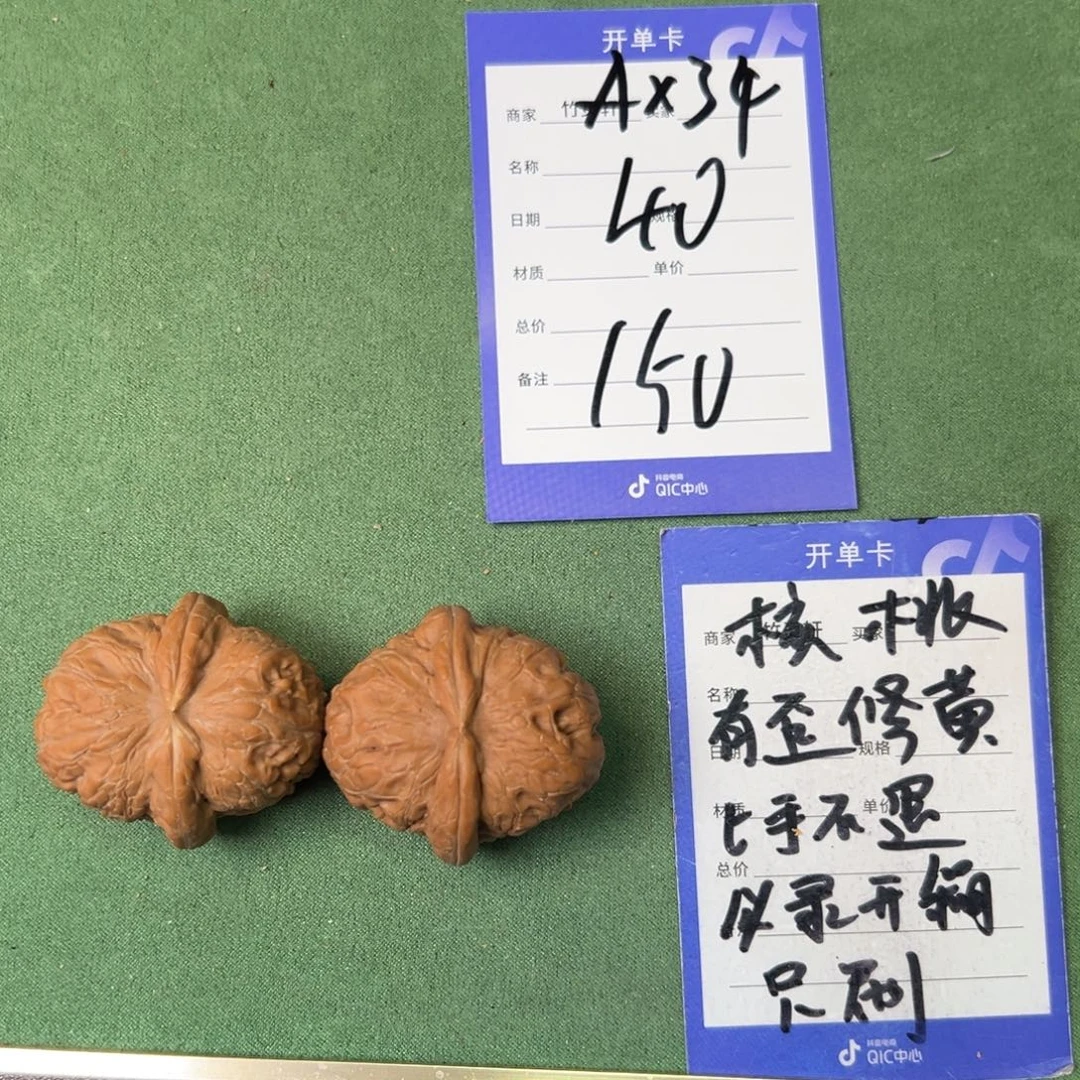 开单卡
AX34
商家 竹 轩 买家
名称
40
日期 规格
材质 单价
总价
150
备注
抖音电商
QIC中心
开单卡
核桃
商家 竹 轩 买家
名称
有歪修黄
日期 规格
上手不退
材质 单价
总价
必录开箱
只刷
抖音电商
QIC中心